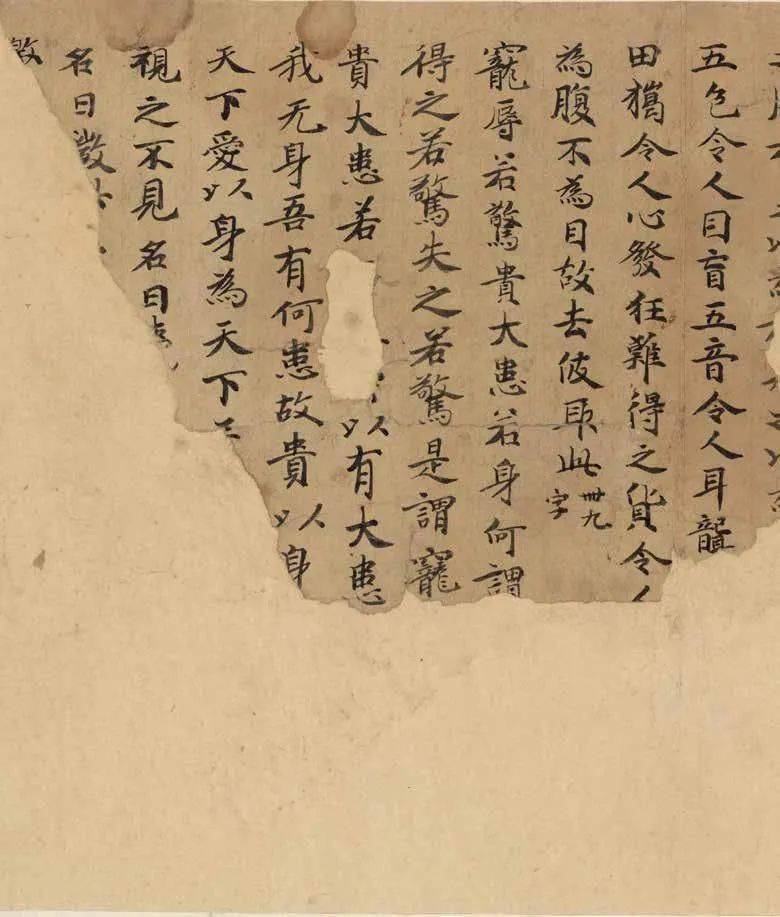 五色令人目盲五音令人耳聾
田獦令人心發狂難得之貨令人
為腹不為目故去彼取此卌九字
寵辱若驚貴大患若身何謂
得之若驚失之若驚是謂寵
貴大患若以有大患
我无身吾有何患故貴以身
天下愛以身為天下
視之不見名曰
名曰微